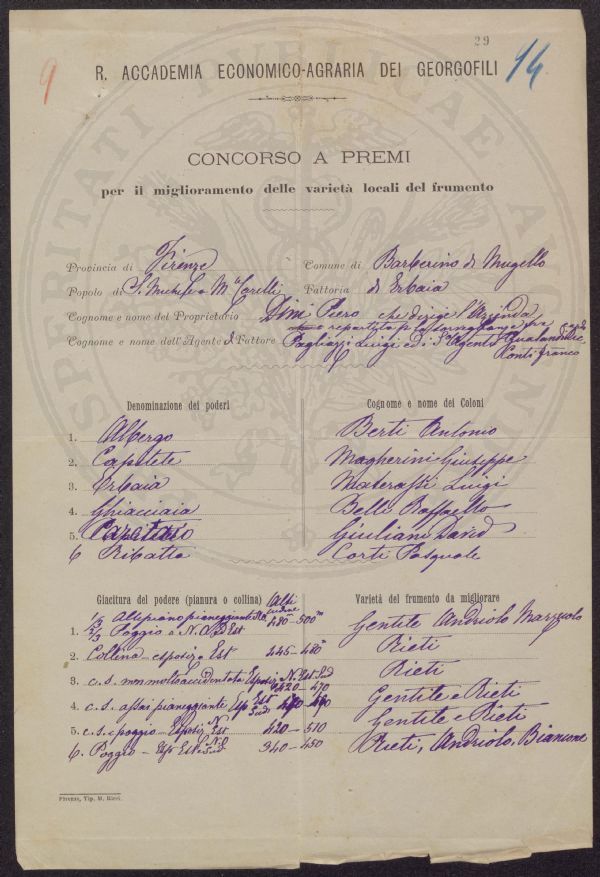 29
9
14
R. ACCADEMIA ECONOMICO-AGRARIA DEI GEORGOFILI
CONCORSO A PREMI
per il miglioramento delle varietà locali del frumento
Provincia di Firenze Comune di Barberino di Mugello
Popolo di S. Michele a M.te Carelli Fattoria di Erbaia
Cognome e nome del Proprietario Dini Piero che dirige l'Azienda
e repartita fra
Cognome e nome dell'Agente o Fattore Pagliazzi Luigi ed i Agenti
Conti franco
Denominazione dei poderi Cognome e nome dei Coloni
1. Albergo Berti Antonio
2. Capitete Magherini Giuseppe
3. Erbaia Materassi Luigi
4. Ghiacciaia Belli Raffaello
5. Giuliani David
6 Ribatta Corti Pasquale
Giacitura del podere (pianura o collina) Alti
tudine
Varietà del frumento da migliorare
1/3 Altipiano pianeggiante 480-500 m
1. 2/3 Poggio a N. Est Gentile Andriolo Marzuolo
2. Collina esposiz. Est 445-480 m Rieti
3. c.s. non molto accidentata Esposiz. N. Est Sud Rieti
420-470
4. c.s. assai pianeggiante Esp. Est Sud Gentile e Rieti
5. c.s. e poggio - Esposiz. N. Est 420-510 Gentile e Rieti
6. Poggio - Esp. Est. Sud 340-450 Rieti, Andriolo, Biancone
Firenze, Tip. M. Ricci.